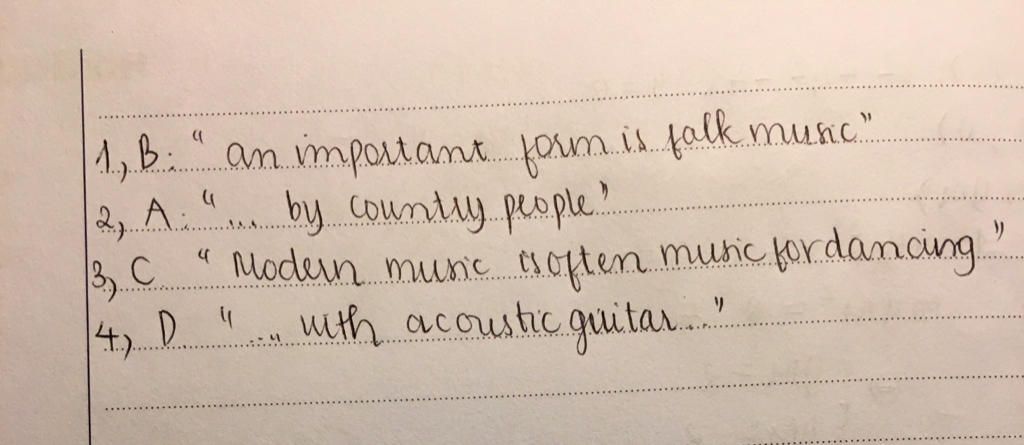 1, B: " an important form is folk music"
2, A: "... by country people"
3, C " Modern music is often music for dancing"
4, D. "... with acoustic guitar..."